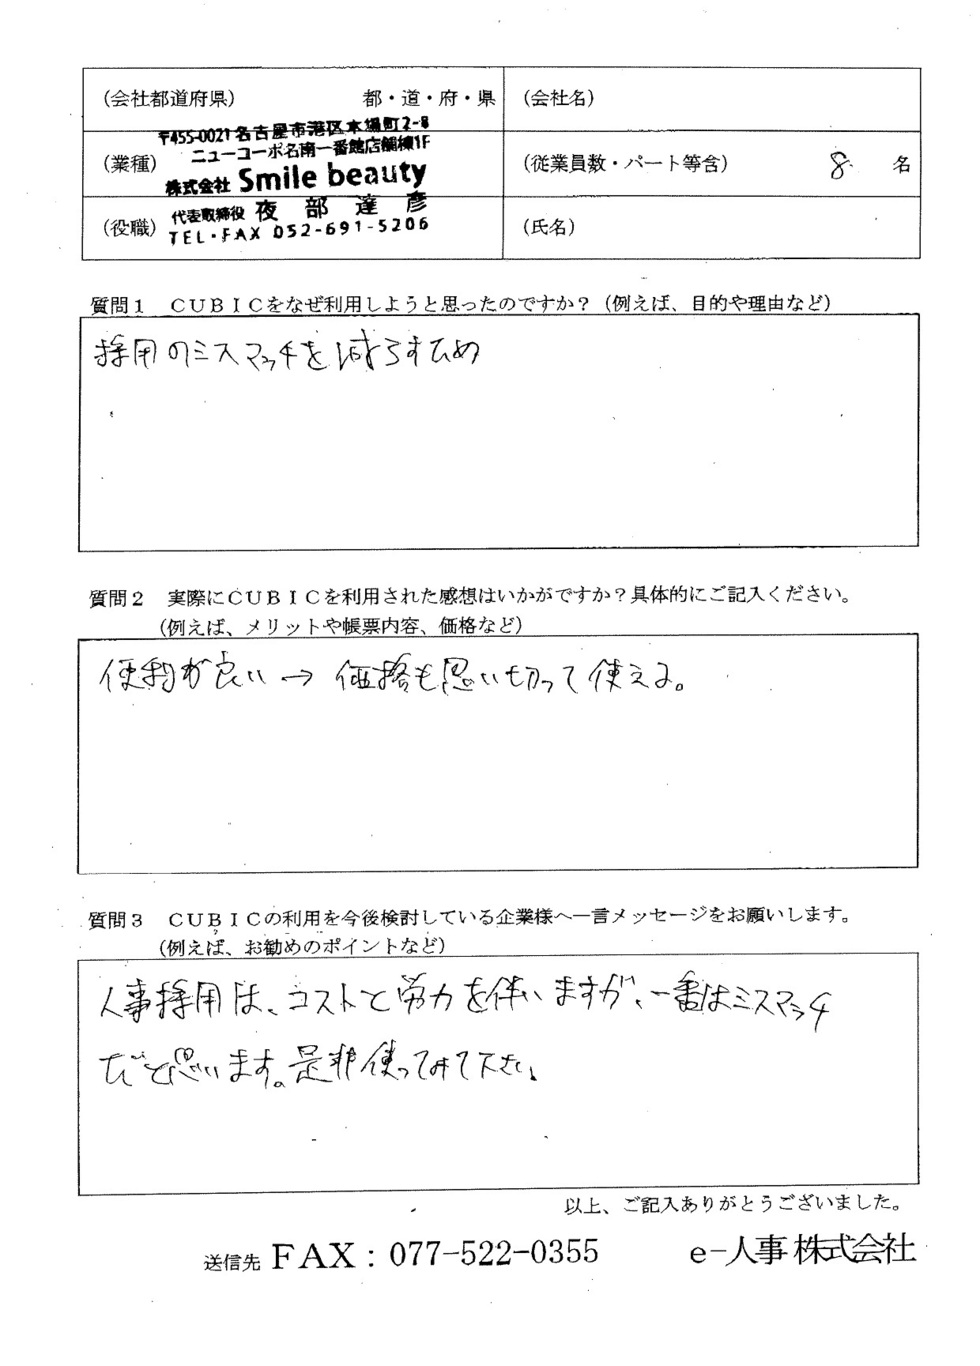 (会社都道府県) 都・道・府・県 (会社名)
〒455-0021 名古屋市港区本場町2-8
ニューコーポ名南一番館店舗棟1F
(業種) (従業員数・パート等含) 8 名
株式会社 Smile beauty
代表取締役 夜部 達彦
(役職) (氏名)
TEL・FAX 052-691-5206
質問1 CUBICをなぜ利用しようと思ったのですか?(例えば、目的や理由など)
採用のミスマッチを減らすため
質問2 実際にCUBICを利用された感想はいかがですか?具体的にご記入ください。
(例えば、メリットや帳票内容、価格など)
便利が良い → 価格も思い切って使える。
質問3 CUBICの利用を今後検討している企業様へ一言メッセージをお願いします。
(例えば、お勧めのポイントなど)
人事採用は、コストと労力を伴いますが、一番はミスマッチ
だと思います。是非使ってみて下さい。
以上、ご記入ありがとうございました。
送信先 FAX:077-522-0355 e-人事株式会社